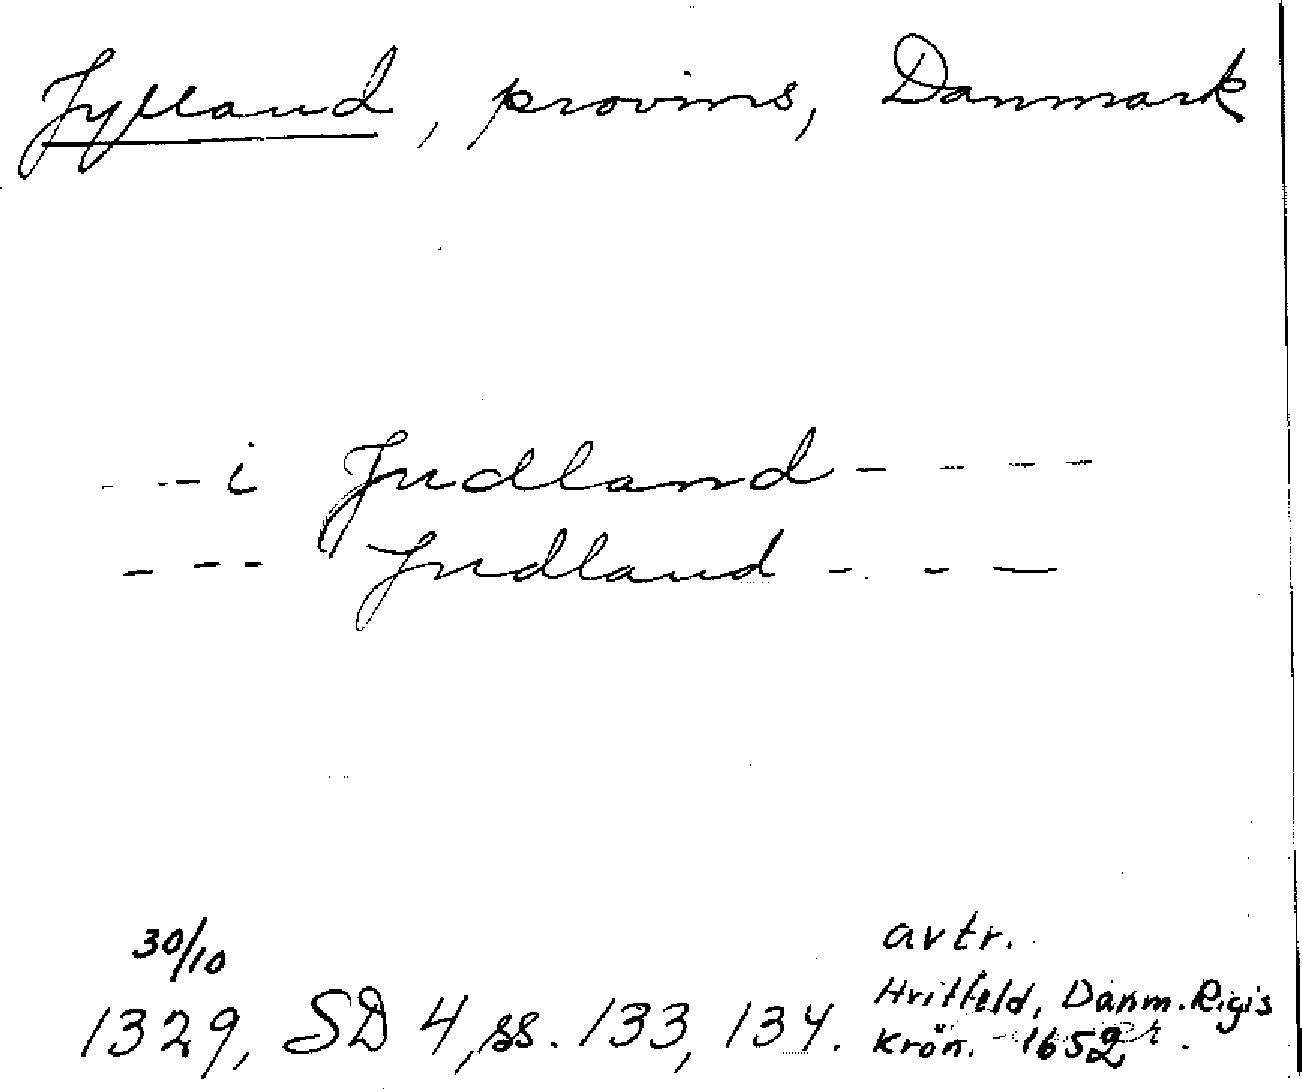 Jylland, provins, Danmark
- - - i Judland - - - -
- - - Judland - - -
30/10 avtr.
1329, SD 4, ss. 133, 134. Hvitfeld, Danm. Rigis
Krön. 1652.